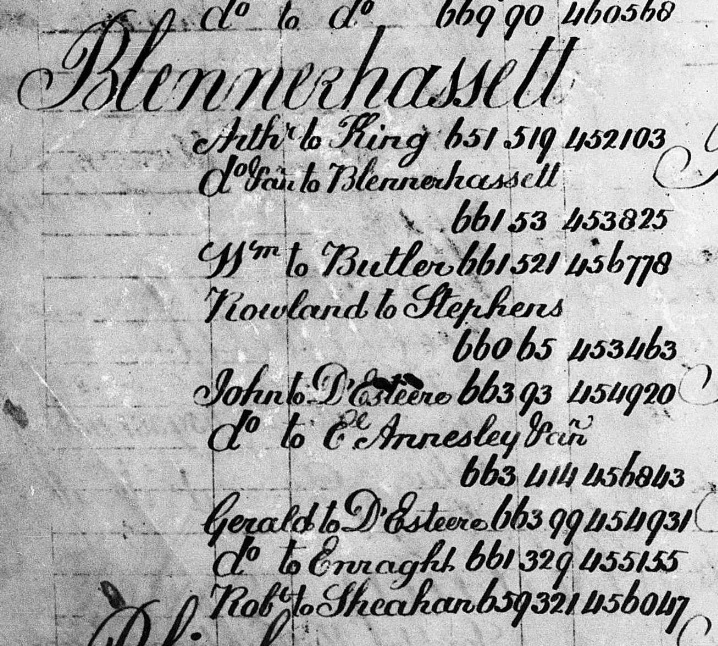 do to do 669 90 460568
Blennerhassett
Arthr to King 651 519 452103
do &an to Blennerhassett
661 53 453825
Wm to Butler 661 521 456778
Rowland to Stephens
660 65 453463
John to D'Esteere 663 93 454920
do to Annesley &an
663 414 456843
Gerald to D'Esteere 663 99 454931
do to Enraght 661 329 455155
Robt to Sheahan 659 321 456047